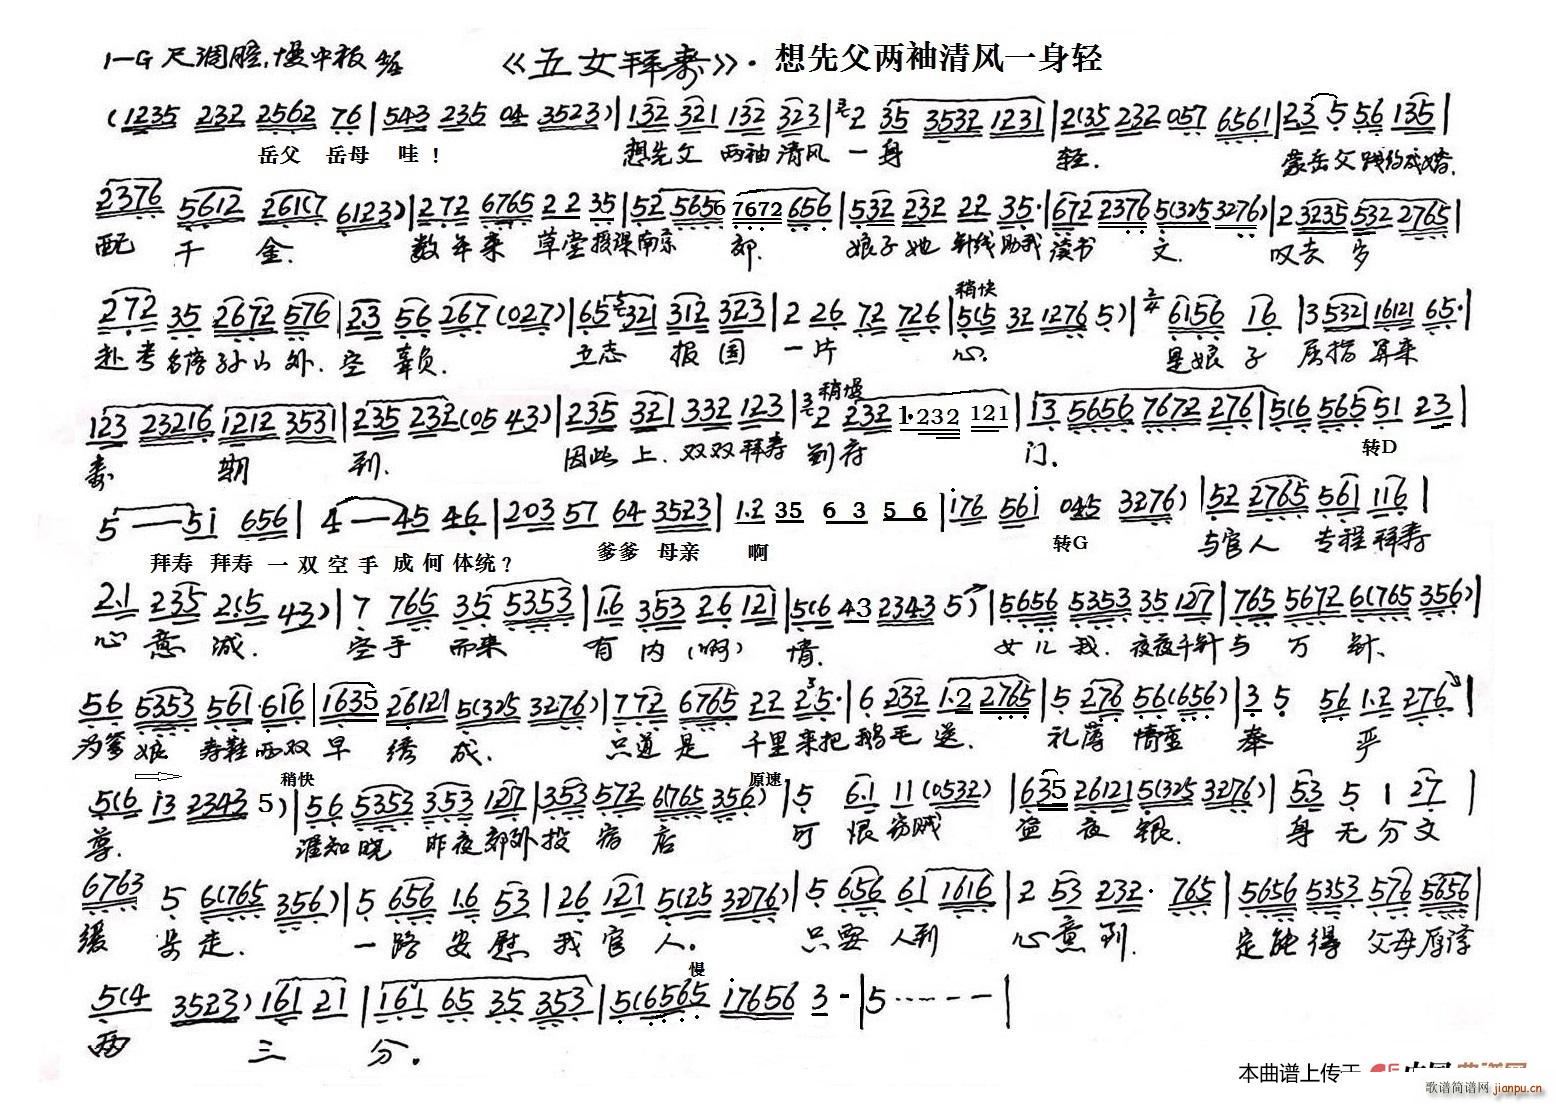 1=G 尺调腔,慢中板 《五女拜寿》·想先父两袖清风一身轻
(1235 232 2562 76 | 543 235 04 3523) | 132 321 132 323 | 2 35 3532 1231 | 2(35 232 057 6561 | 23 5 56 135 |
岳父 岳母 哇! 想先父 两袖清风 一身 轻. 蒙岳父践约成婚.
2376 5612 261(7 6123) | 272 6765 22 35 | 52 5656 7672 656 | 532 232 22 35· | 672 2376 5(325 3276) | 2 3235 532 2765 |
配 千 金. 数年来 草堂授课南京 郊. 娘子她 针线助我读书 文. 叹去 岁
272 35 2672 576 | 23 56 267 (027) | 65 321 312 323 | 2 26 72 726 | 稍快 5(5 32 1276 5) | 2/4 6156 16 | 3532 16121 65· |
赴考 名落孙山外. 空 辜负. 立志 报国 一片 心. 是娘子 屈指 算来
123 23216 1212 3531 | 235 232 (05 43) | 235 32 332 123 | 稍慢 2 232 1·232 121 | 13 5656 7672 276 | 5(6 565 51 23 |
寿 期 到. 因此上. 双双拜寿 到府 门. 转D
5 — — 5i 656 | 4 — — 45 46 | 203 57 64 3523 | 1.2 35 63 56 | i76 56i 045 3276) | 52 2765 561 116 |
拜寿 拜寿 一双空手成何体统? 爹爹 母亲 啊 转G 与官人 专程拜寿
2.1 235 2(5 43) | 7 765 35 5353 | 1.6 353 26 121 | 5(6 43 2343 5) | 5656 5353 35 127 | 765 5672 6(765 356) |
心意诚. 空手 而来 有内(啊)情. 女儿我. 夜夜千针与万针、
56 5353 561·616 | 1635 26121 5(325 3276) | 772 6765 22 25· | 6 232 1·2 2765 | 5 276 56(656) | 3 5 56 1.2 276 |
为爹娘 寿鞋两双早 绣 成. 只道是 千里来把鹅毛 送. 礼薄 情重 奉 严
5(6 i3 2343 5) | 稍快 56 5353 3.53 127 | 353 572 6(765 356) | 原速 5 6.1 11 (0532) | 635 26121 5(325 3276) | 53 5 1 27 |
尊. 谁知晓 昨夜郊外投宿店 可恨窃贼 盗夜银. 身无分文
6763 5 6(765 356) | 5 656 1.6 53 | 26 121 5(25 3276) | 5 656 61 1616 | 2 53 232· 765 | 5656 5353 576 5656 |
缓 步走. 一路安慰我官人. 只要 人到 心意到. 定能得 父母厚谆
5(4 3523) 161 21 | 161 65 35 353 | 慢 5(6565 i7656 3 - | 5 ······ — — |
两 三 分.
本曲谱上传于
歌谱简谱网 jianpu.cn